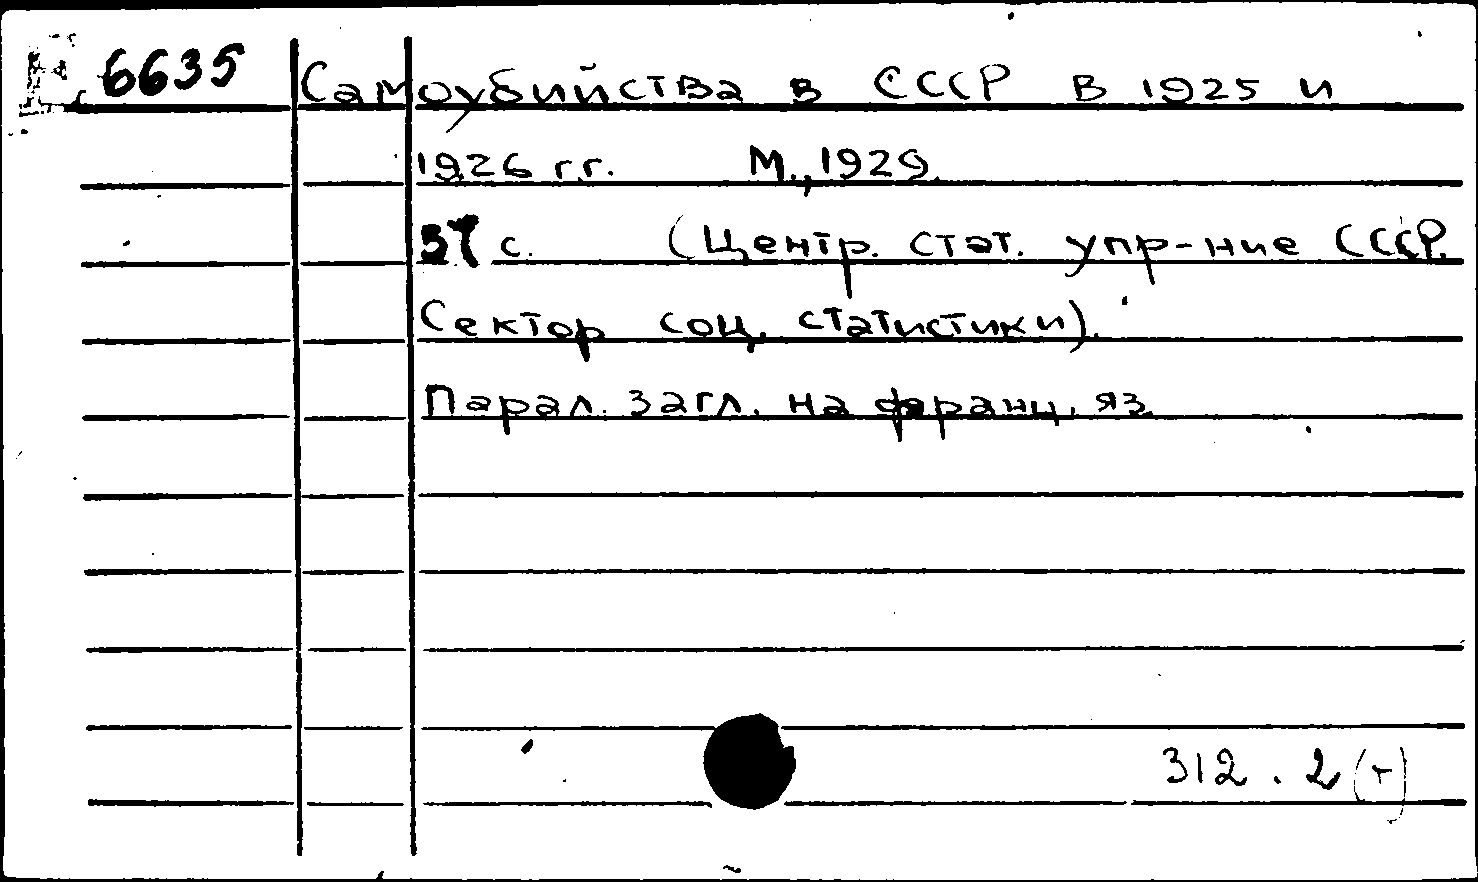 6635 Самоубийства в СССР в 1925 и
1926 г.г. М., 1929.
37 с. (Центр. стат. упр-ние СССР.
Сектор соц. статистики).
Парал. загл. на франц. яз.
312.2(т)